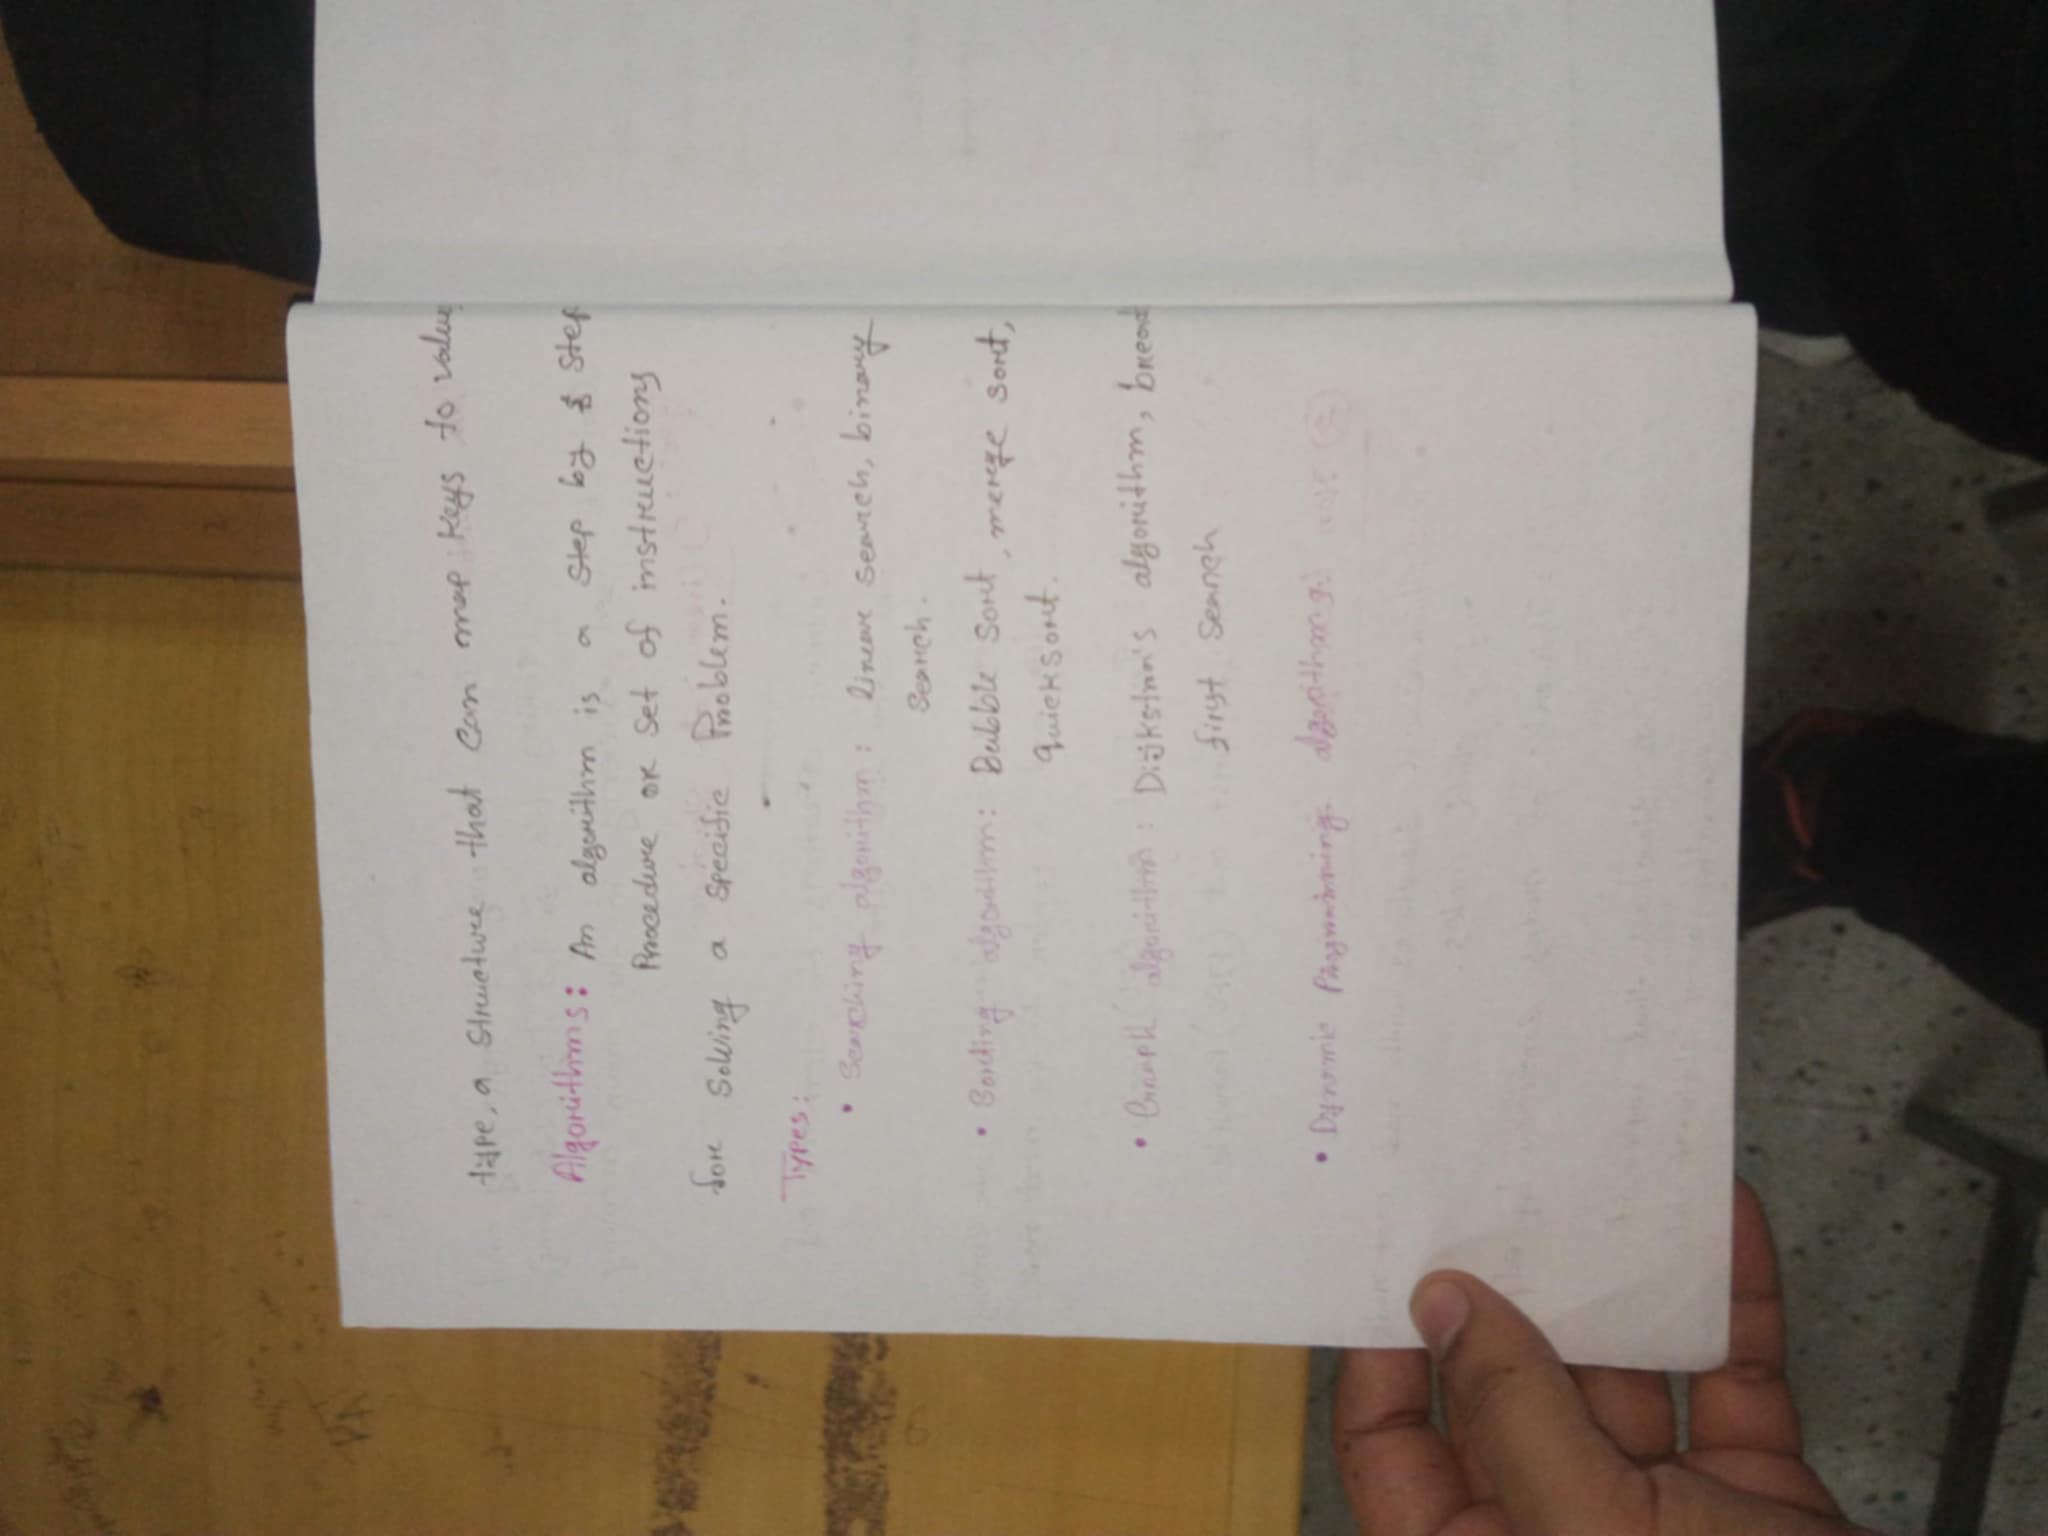 type, a structure that can map keys to value
Algorithms: An algorithm is a step by step
Procedure or set of instructions
for solving a specific Problem.
Types:
• Searching algorithm: linear search, binary
search.
• Sorting algorithm: Bubble sort, merge sort,
quicksort.
• Graph algorithm: Dijkstra's algorithm, bread
first search
• Dynamic Programming algorithms.
PA